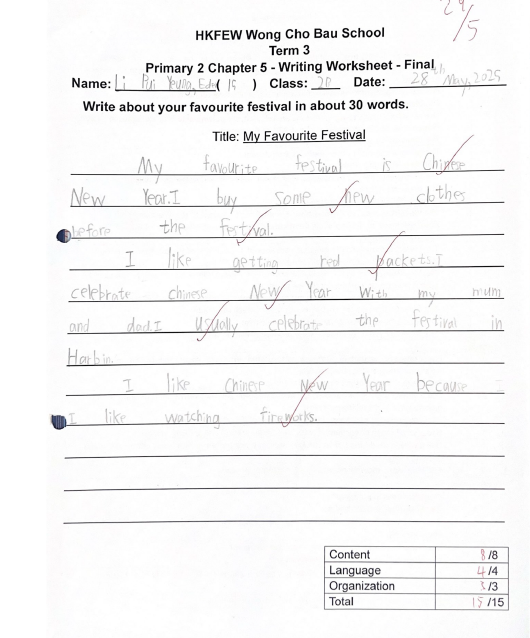 29/5
HKFEW Wong Cho Bau School
Term 3
Primary 2 Chapter 5 - Writing Worksheet - Final
Name: Li Pui Yeung, ( 15 ) Class: 2D Date: 28th May, 2025
Write about your favourite festival in about 30 words.
Title: My Favourite Festival
My favourite festival is Chinese
New Year. I buy some new clothes
before the festival.
I like getting red packets. I
celebrate chinese New Year With my mum
and dad. I Usually celebrate the festival in
Harbin.
I like Chinese New Year because
I like watching fireworks.
Content 8/8
Language 4/4
Organization 3/3
Total 15/15